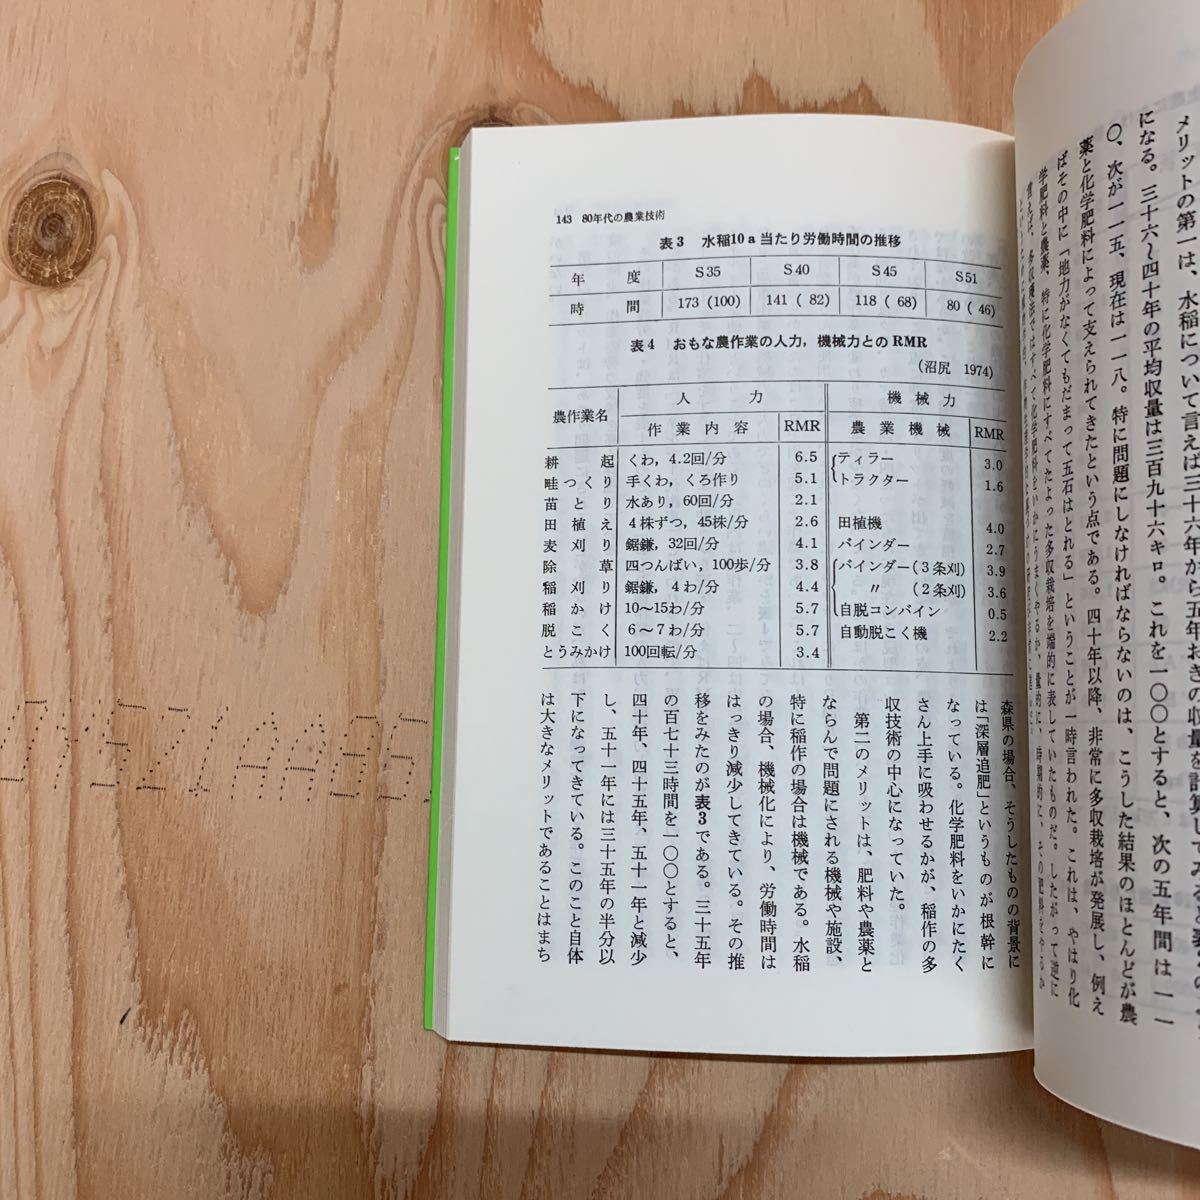 メリットの第一は、水稲について言えば三十六年から五年おきの収量を計算してみ
になる。三十六〜四十年の平均収量は三百九十六キロ。これを一〇〇とすると、次の五年間は一一
〇、次が一一五、現在は一一八。特に問題にしなければならないのは、こうした結果のほとんどが農
薬と化学肥料によって支えられてきたという点である。四十年以降、非常に多収栽培が発展し、例え
ばその中に「地力がなくてもだまって五石はとれる」ということが一時言われた。これは、やはり化
学肥料と農薬、特に化学肥料にすべてたよった多収栽培を端的に表していたものだ。したがって逆に
143 80年代の農業技術
表3 水稲10a当たり労働時間の推移
年度 S35 S40 S45 S51
時間 173 (100) 141 ( 82) 118 ( 68) 80 ( 46)
表4 おもな農作業の人力，機械力とのRMR
(沼尻 1974)
農作業名 人力 機械力
作業内容 RMR 農業機械 RMR
耕起 くわ，4.2回/分 6.5 ティラー 3.0
畦つくり 手くわ，くろ作り 5.1 トラクター 1.6
苗とり 水あり，60回/分 2.1
田植え 4株ずつ，45株/分 2.6 田植機 4.0
麦刈り 鋸鎌，32回/分 4.1 バインダー 2.7
除草 四つんばい，100歩/分 3.8 バインダー(3条刈) 3.9
稲刈り 鋸鎌，4わ/分 4.4 〃 (2条刈) 3.6
稲かけ 10〜15わ/分 5.7 自脱コンバイン 0.5
脱こく 6〜7わ/分 5.7 自動脱こく機 2.2
とうみかけ 100回転/分 3.4
森県の場合、そうしたものの背景に
は「深層追肥」というものが根幹に
なっている。化学肥料をいかにたく
さん上手に吸わせるかが、稲作の多
収技術の中心になっていた。
第二のメリットは、肥料や農薬と
ならんで問題にされる機械や施設、
特に稲作の場合は機械である。水稲
の場合、機械化により、労働時間は
はっきり減少してきている。その推
移をみたのが表3である。三十五年
の百七十三時間を一〇〇とすると、
四十年、四十五年、五十一年と減少
し、五十一年には三十五年の半分以
下になってきている。このこと自体
は大きなメリットであることはまち